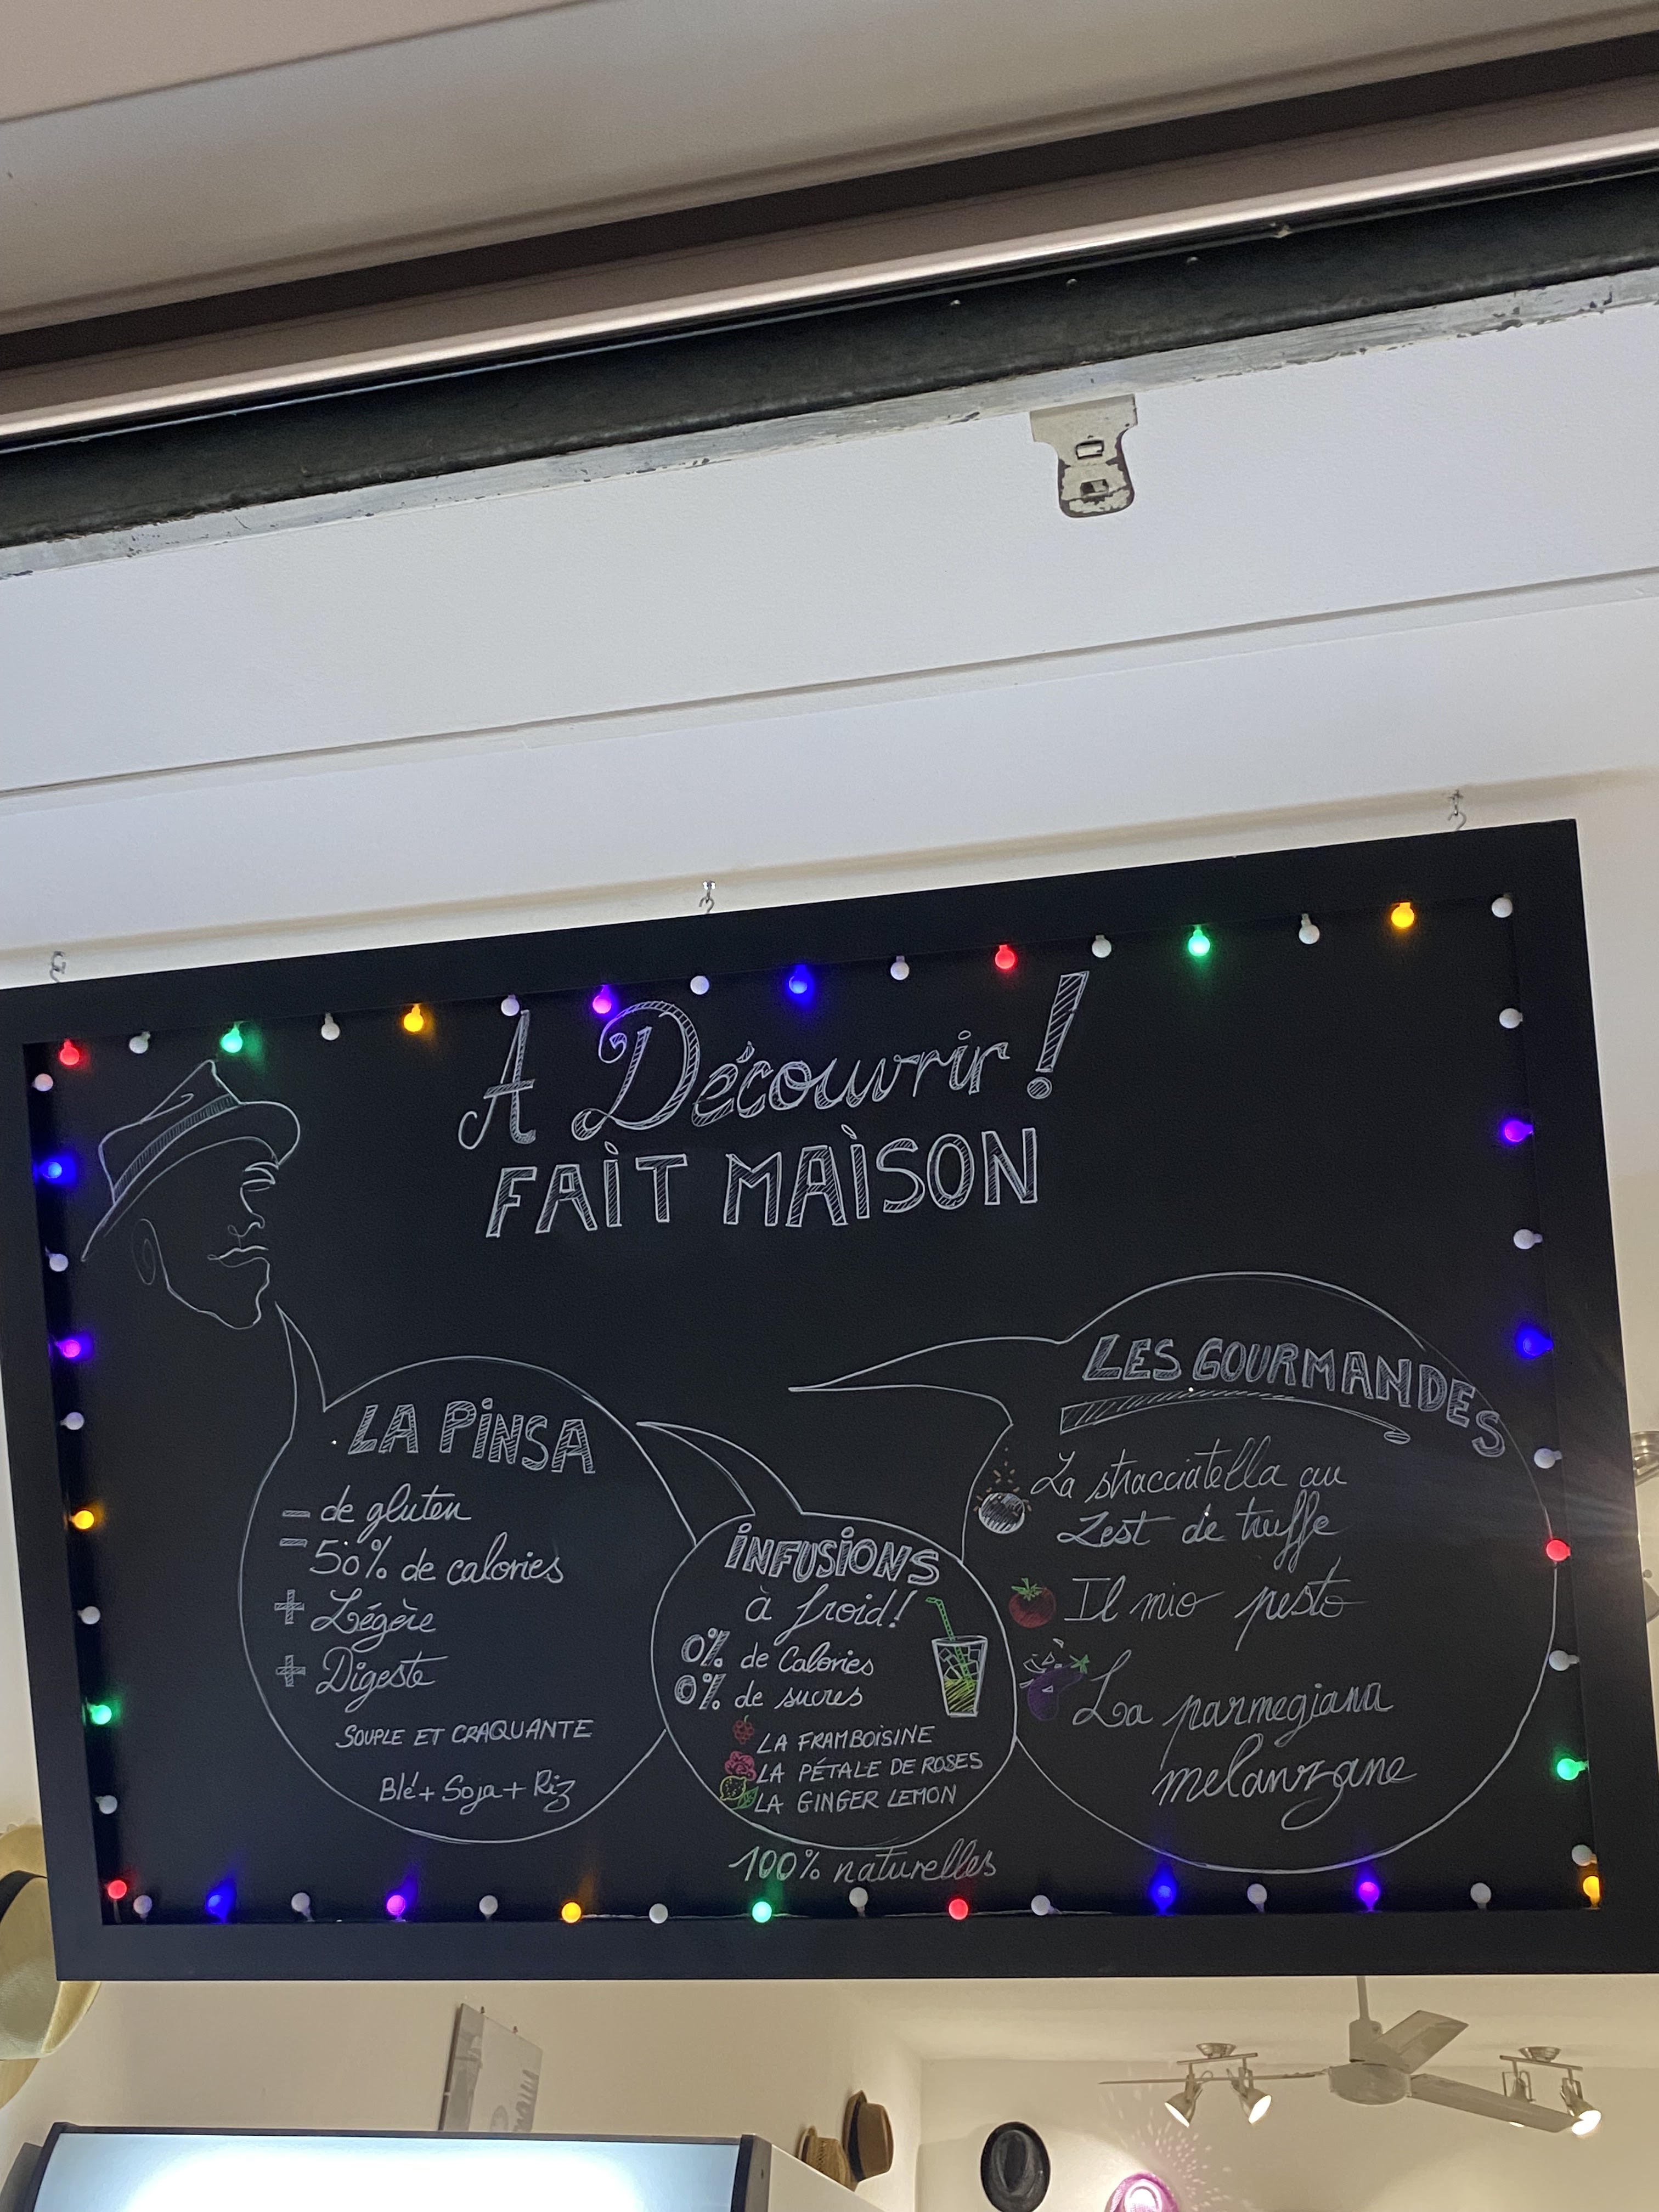 A Découvrir !
FAIT MAISON
LA PINSA
- de gluten
- 50% de calories
+ Légère
+ Digeste
SOUPLE ET CRAQUANTE
Blé + Soja + Riz
INFUSIONS
à froid!
0% de Calories
0% de sucres
LA FRAMBOISINE
LA PÉTALE DE ROSES
LA GINGER LEMON
100% naturelles
LES GOURMANDES
La stracciatella au
Zest de truffe
Il mio pesto
La parmegiana
melanzane